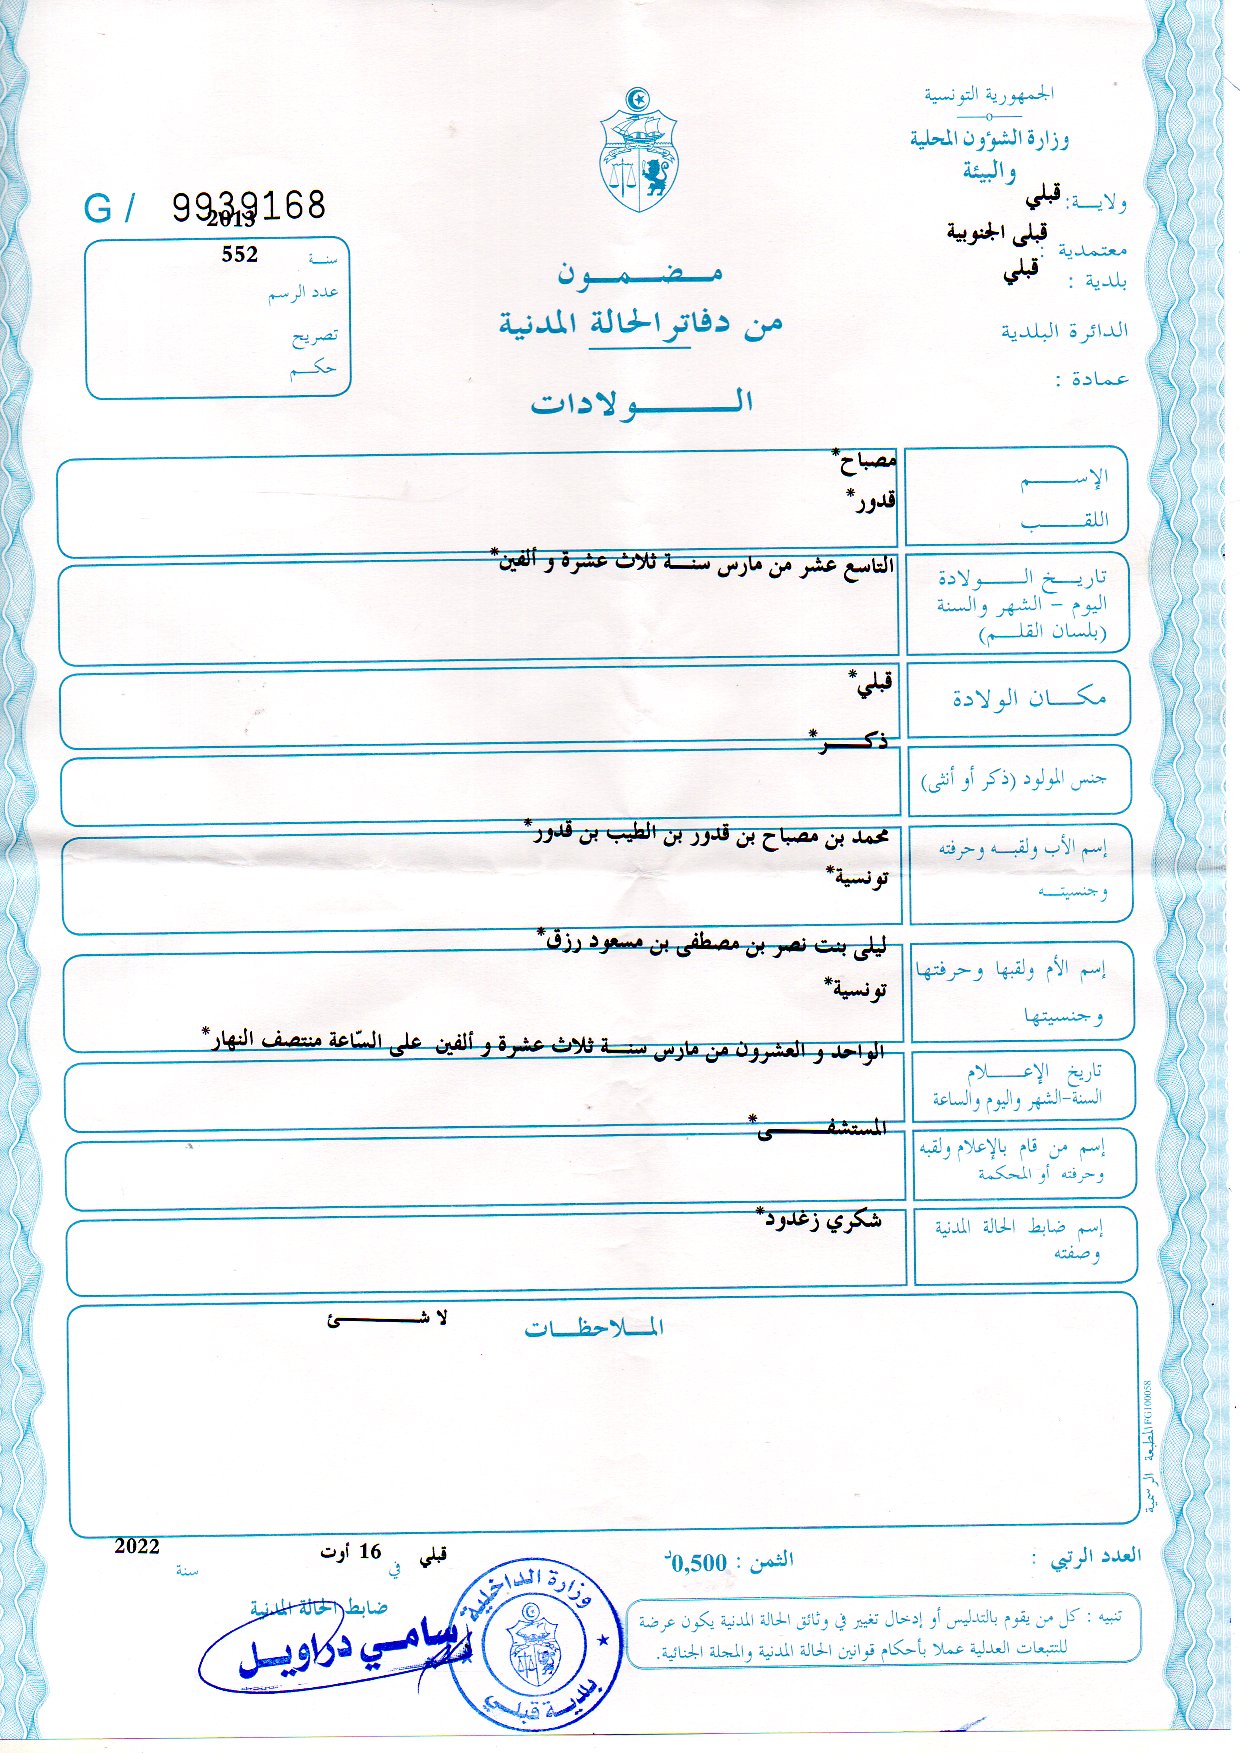 الجمهورية التونسية
وزارة الشؤون المحلية
والبيئة
ولايـــة: قبلي
معتمدية : قبلى الجنوبية
بلدية : قبلي
الدائرة البلدية
عمادة :
G / 9939168
2013
سنـة
552
عدد الرسم
تصريح
حكـم
مـضـمـون
من دفاتر الحالة المدنية
الـولادات
الإسـم
مصباح*
اللقـب
قدور*
تاريـخ الـولادة
اليوم – الشهر والسنة
(بلسان القلـم)
التاسع عشر من مارس سنـة ثلاث عشرة و ألفين*
مكـان الولادة
قبلي*
جنس المولود (ذكر أو أنثى)
ذكـر*
إسم الأب ولقبـه وحرفته
وجنسيتـه
محمد بن مصباح بن قدور بن الطيب بن قدور*
تونسية*
إسم الأم ولقبها وحرفتها
وجنسيتها
ليلى بنت نصر بن مصطفى بن مسعود رزق*
تونسية*
تاريخ الإعـلام
السنة-الشهر واليوم والساعة
الواحد و العشرون من مارس سنـة ثلاث عشرة و ألفين على السّاعة منتصف النهار*
إسم من قام بالإعلام ولقبه
وحرفته أو المحكمة
المستشفـى*
إسم ضابط الحالة المدنية
وصفته
شكري زغدود*
المـلاحظـات
لا شـئ
المطبعة الرسمية FG100058
العدد الرتبي :
الثمن : 0,500د
قبلي في 16 أوت سنة 2022
ضابط الحالة المدنية
سامي دراويـل
وزارة الداخلية
بلدية قبلـي
تنبيه : كل من يقوم بالتدليس أو إدخال تغيير في وثائق الحالة المدنية يكون عرضة
للتتبعات العدلية عملا بأحكام قوانين الحالة المدنية والمجلة الجنائية.